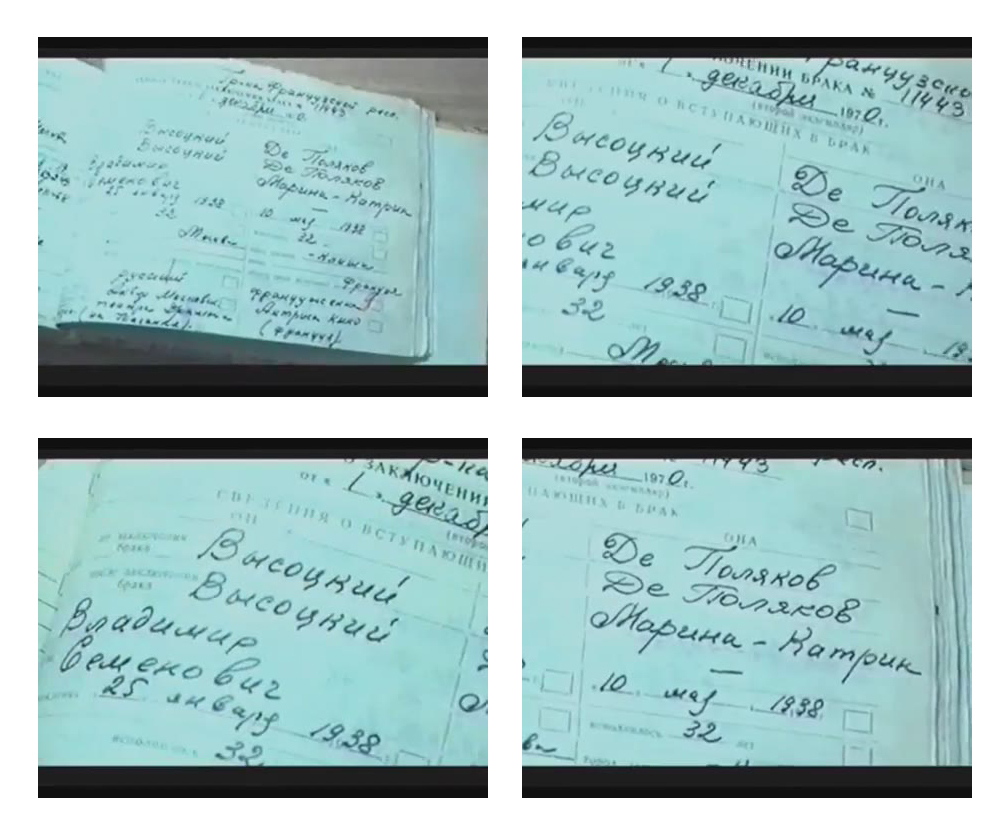 Гр-ка Французской респ.
11443
декабря
Высоцкий
Высоцкий
Владимир
Семенович
25 января 1938
32
Москва
русский
театра
(на Таганке).
Де Поляков
Де Поляков
Марина - Катрин
—
10 мая 1938
32
Франция
француженка
(Франция).
французско
ЮЧЕНИИ БРАКА № 11443
1 декабря 1970 г.
(второй экземпляр)
СВЕДЕНИЯ О ВСТУПАЮЩИХ В БРАК
Высоцкий
Высоцкий
мир
ович
января 1938
32
ОНА
Де Поляк
Де Поля
Марина -
—
10 мая 19
О ЗАКЛЮЧЕНИИ
от « 1 » декаб
СВЕДЕНИЯ О ВСТУПАЮЩИ
ОН
до заключения
брака
после заключения
брака
Высоцкий
Высоцкий
Владимир
Семенович
25 января 1938
исполнилось 32
декабря 1970 г. 11443 респ.
(второй экземпляр)
ПАЮЩИХ В БРАК
ОНА
Де Поляков
Де Поляков
Марина - Катрин
—
10 мая 1938
исполнилось 32 лет